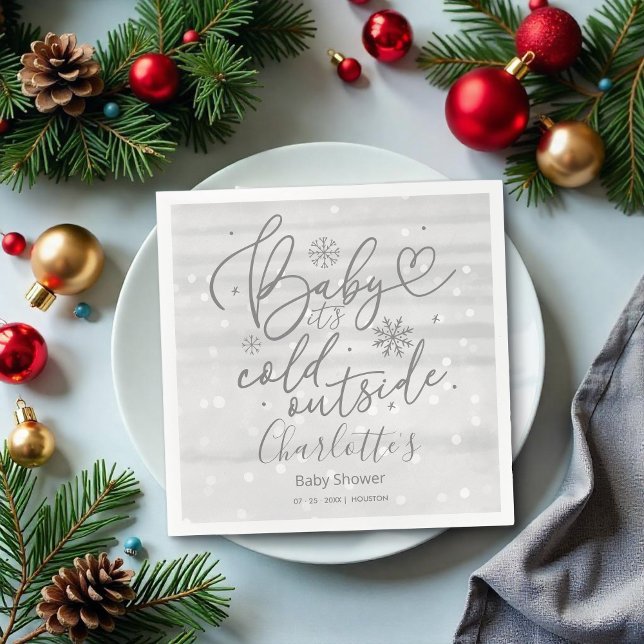 Baby
it's
cold
outside
Charlotte's
Baby Shower
07 · 25 · 20XX | HOUSTON